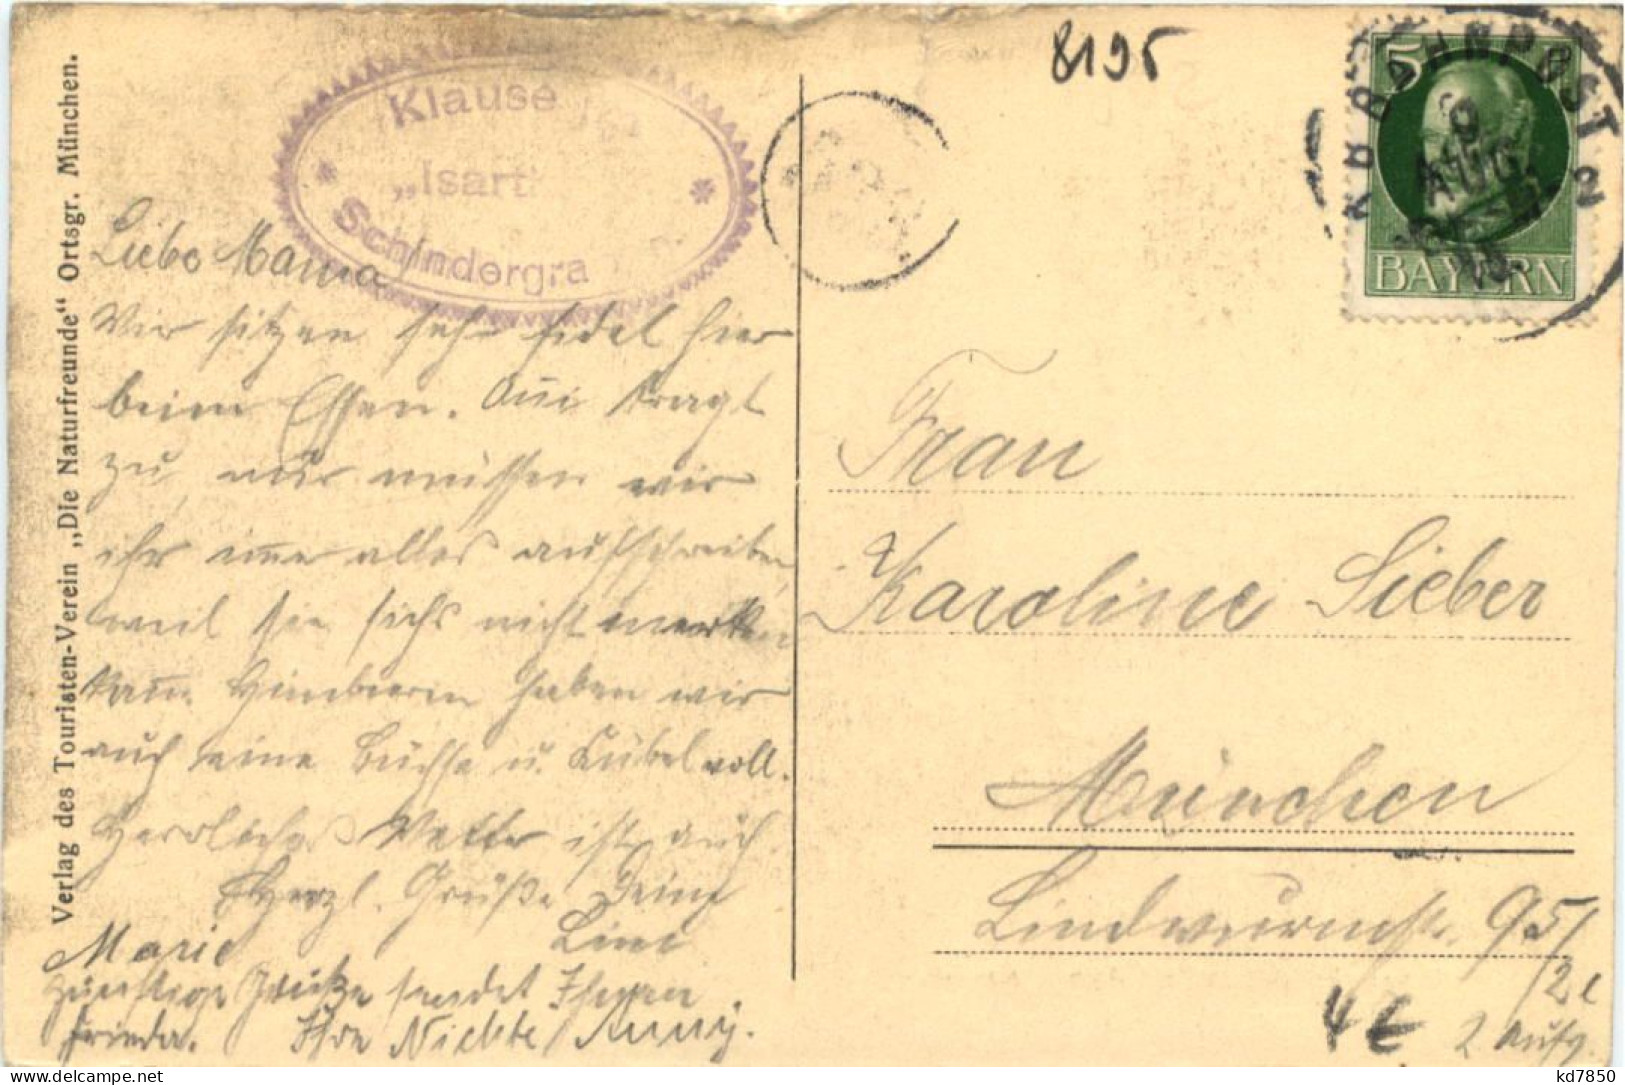 Verlag des Touristen-Verein „Die Naturfreunde“ Ortsgr. München.
Klause
„Isart
Schindergra
8195
K.B. BAHNPOST
9
AUG
5
BAYERN
Liebe Mama
Wir sitzen sehr fidel hier
beim Essen. tragt
zu, nur müssen wir
ihr alles aufschreiben,
weil sie sichs nicht merken
kann. Himbeeren haben wir
auch eine Büchse u. Kübel voll.
Herrliches Wetter ist auch.
Herzl. Grüße Deine
Lini
Marie
Günstige Grüße sendet Ihnen
Frieda. Ihre Nichte Anny.
Frau
Karoline Sieber
München
Lindwurmstr. 95/
/2 l
2 Aufg.
4 €
kd7850